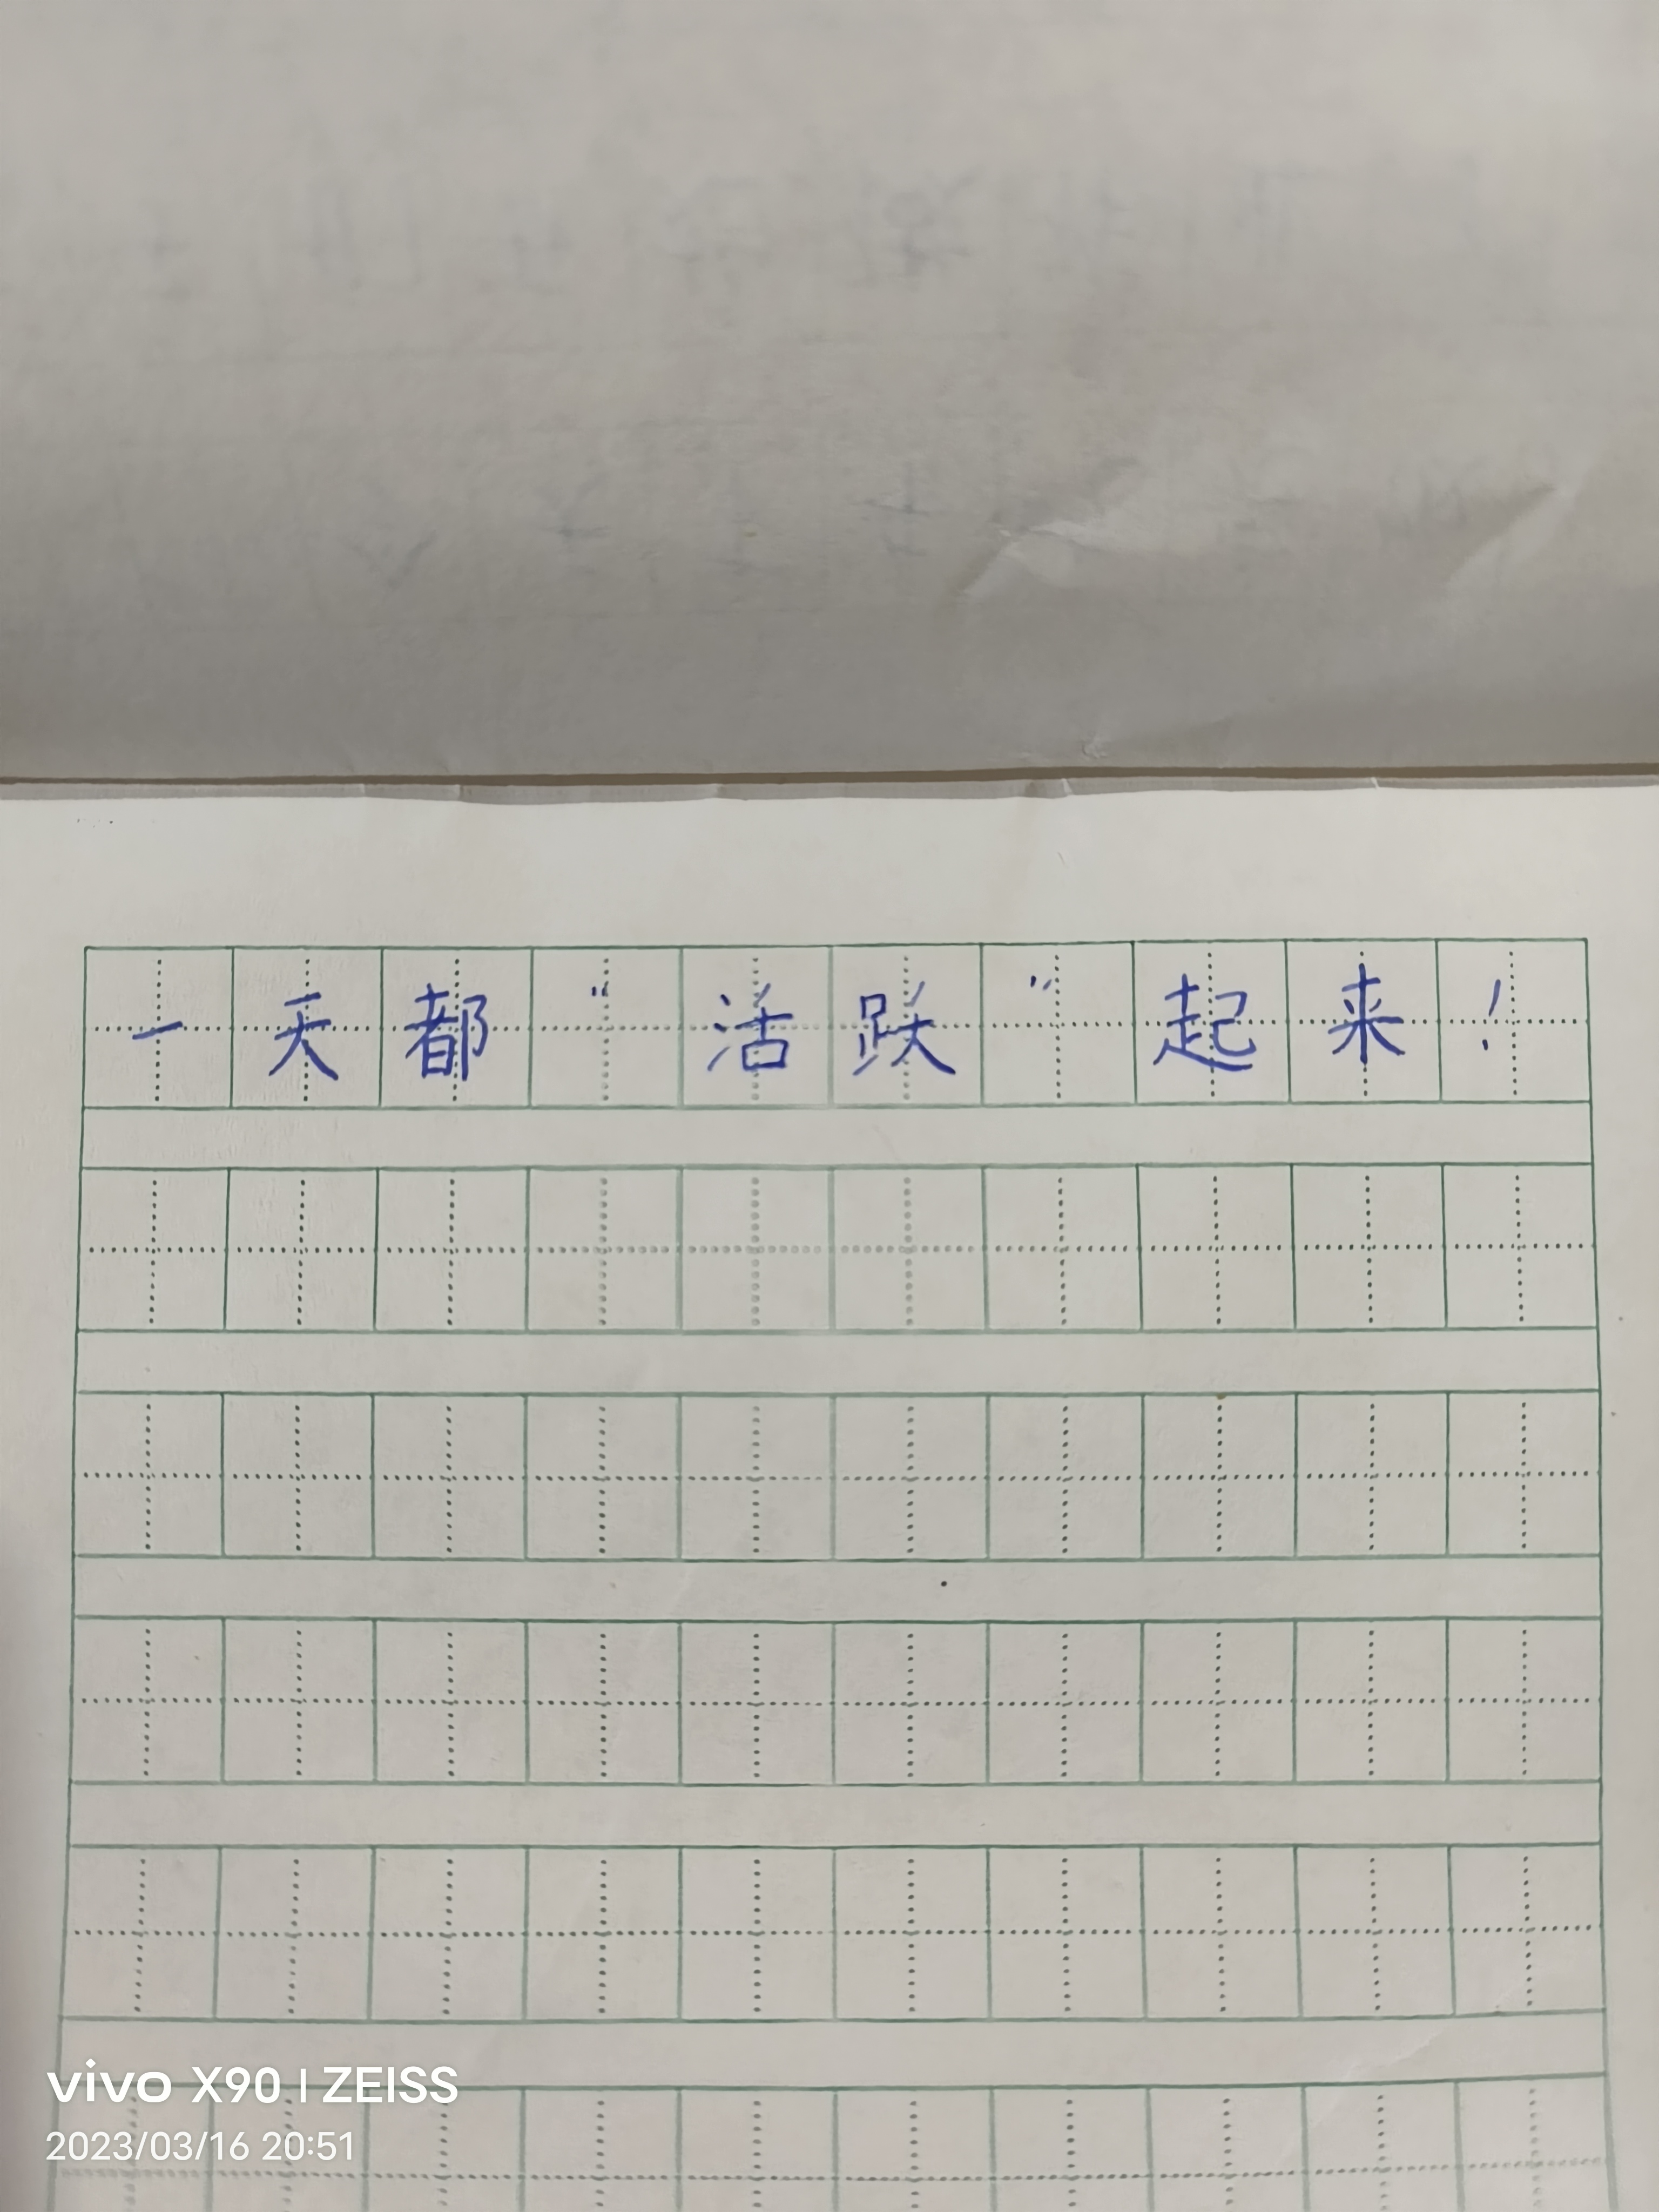 一天都“活跃”起来！
vivo X90 | ZEISS
2023/03/16 20:51